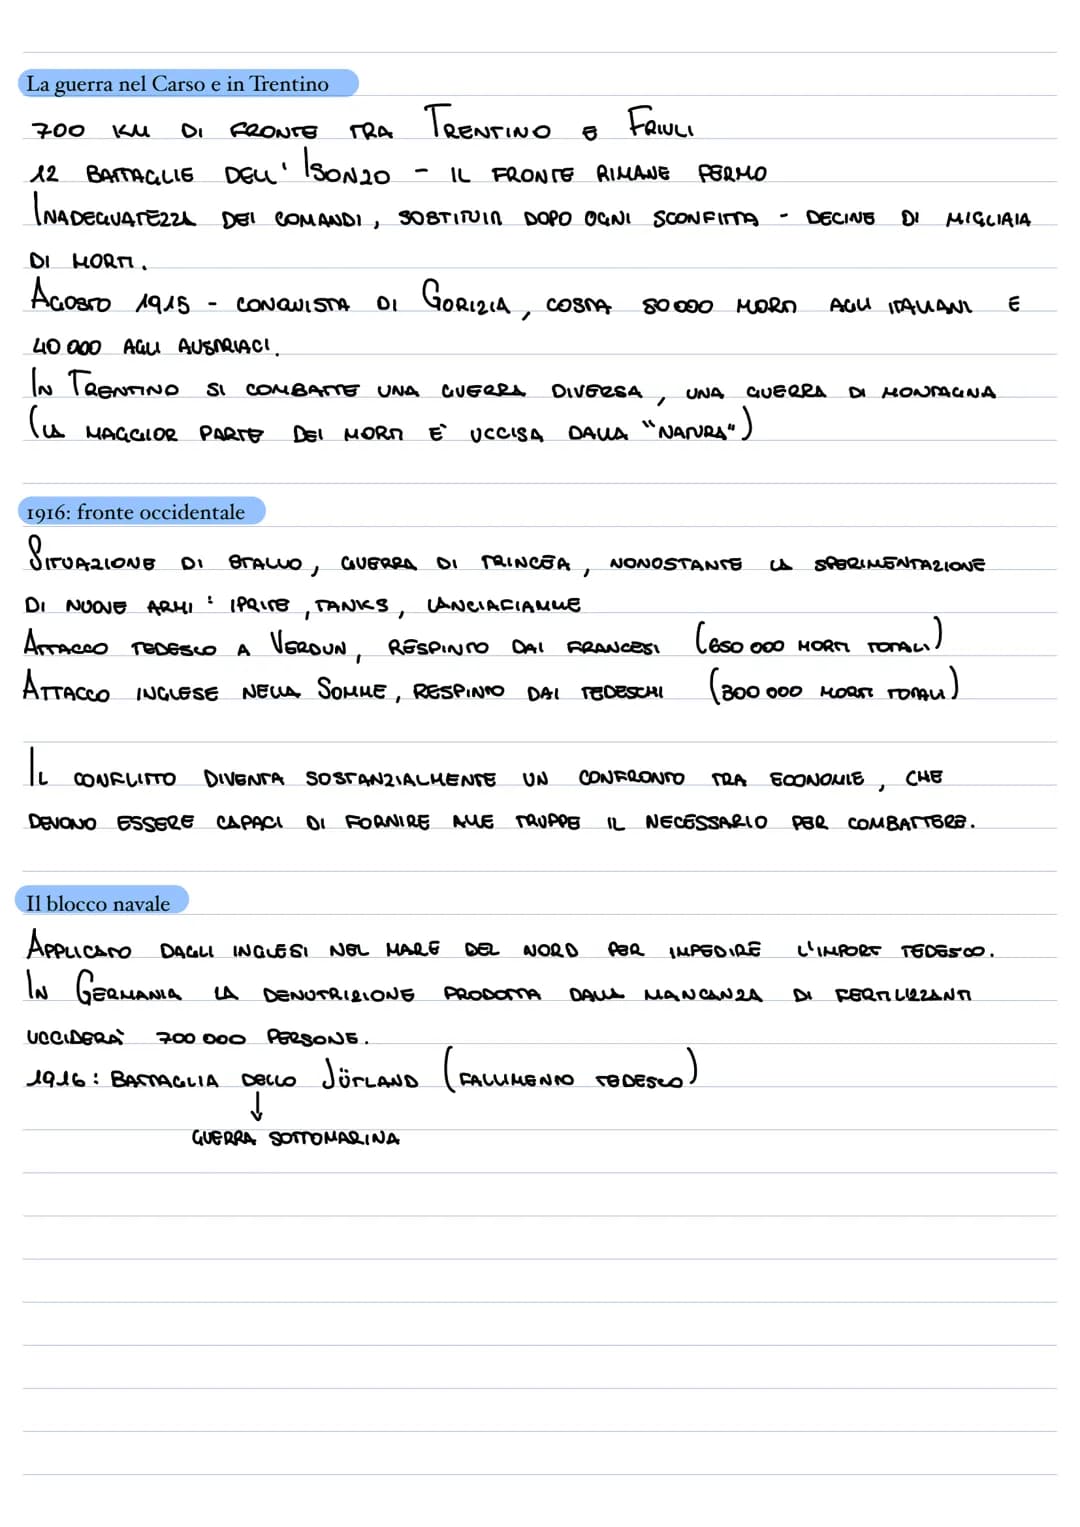 La guerra nel Carso e in Trentino
700 KM DI FRONTE TRA TRENTINO E FRIULI
12 BATTAGLIE DELL'ISONZO - IL FRONTE RIMANE FERMO
INADEGUATEZZA DEI COMANDI, SOSTITUITI DOPO OGNI SCONFITTA - DECINE DI MIGLIAIA
DI MORTI.
AGOSTO 1915 - CONQUISTA DI GORIZIA, COSTA 80 000 MORTI AGLI ITALIANI E
40 000 AGLI AUSTRIACI.
IN TRENTINO SI COMBATTE UNA GUERRA DIVERSA, UNA GUERRA DI MONTAGNA
(LA MAGGIOR PARTE DEI MORTI E' UCCISA DALLA "NATURA")
1916: fronte occidentale
SITUAZIONE DI STALLO, GUERRA DI TRINCEA, NONOSTANTE LA SPERIMENTAZIONE
DI NUOVE ARMI: IPRITE, TANKS, LANCIAFIAMME
ATTACCO TEDESCO A VERDUN, RESPINTO DAI FRANCESI (650 000 MORTI TOTALI)
ATTACCO INGLESE NELLA SOMME, RESPINTO DAI TEDESCHI (300 000 MORTI TOTALI)
IL CONFLITTO DIVENTA SOSTANZIALMENTE UN CONFRONTO TRA ECONOMIE, CHE
DEVONO ESSERE CAPACI DI FORNIRE ALLE TRUPPE IL NECESSARIO PER COMBATTERE.
Il blocco navale
APPLICATO DAGLI INGLESI NEL MARE DEL NORD PER IMPEDIRE L'IMPORT TEDESCO.
IN GERMANIA LA DENUTRIZIONE PRODOTTA DALLA MANCANZA DI FERTILIZZANTI
UCCIDERÀ 700 000 PERSONE.
1916: BATTAGLIA DELLO JÜTLAND (FALLIMENTO TEDESCO)
↓
GUERRA SOTTOMARINA